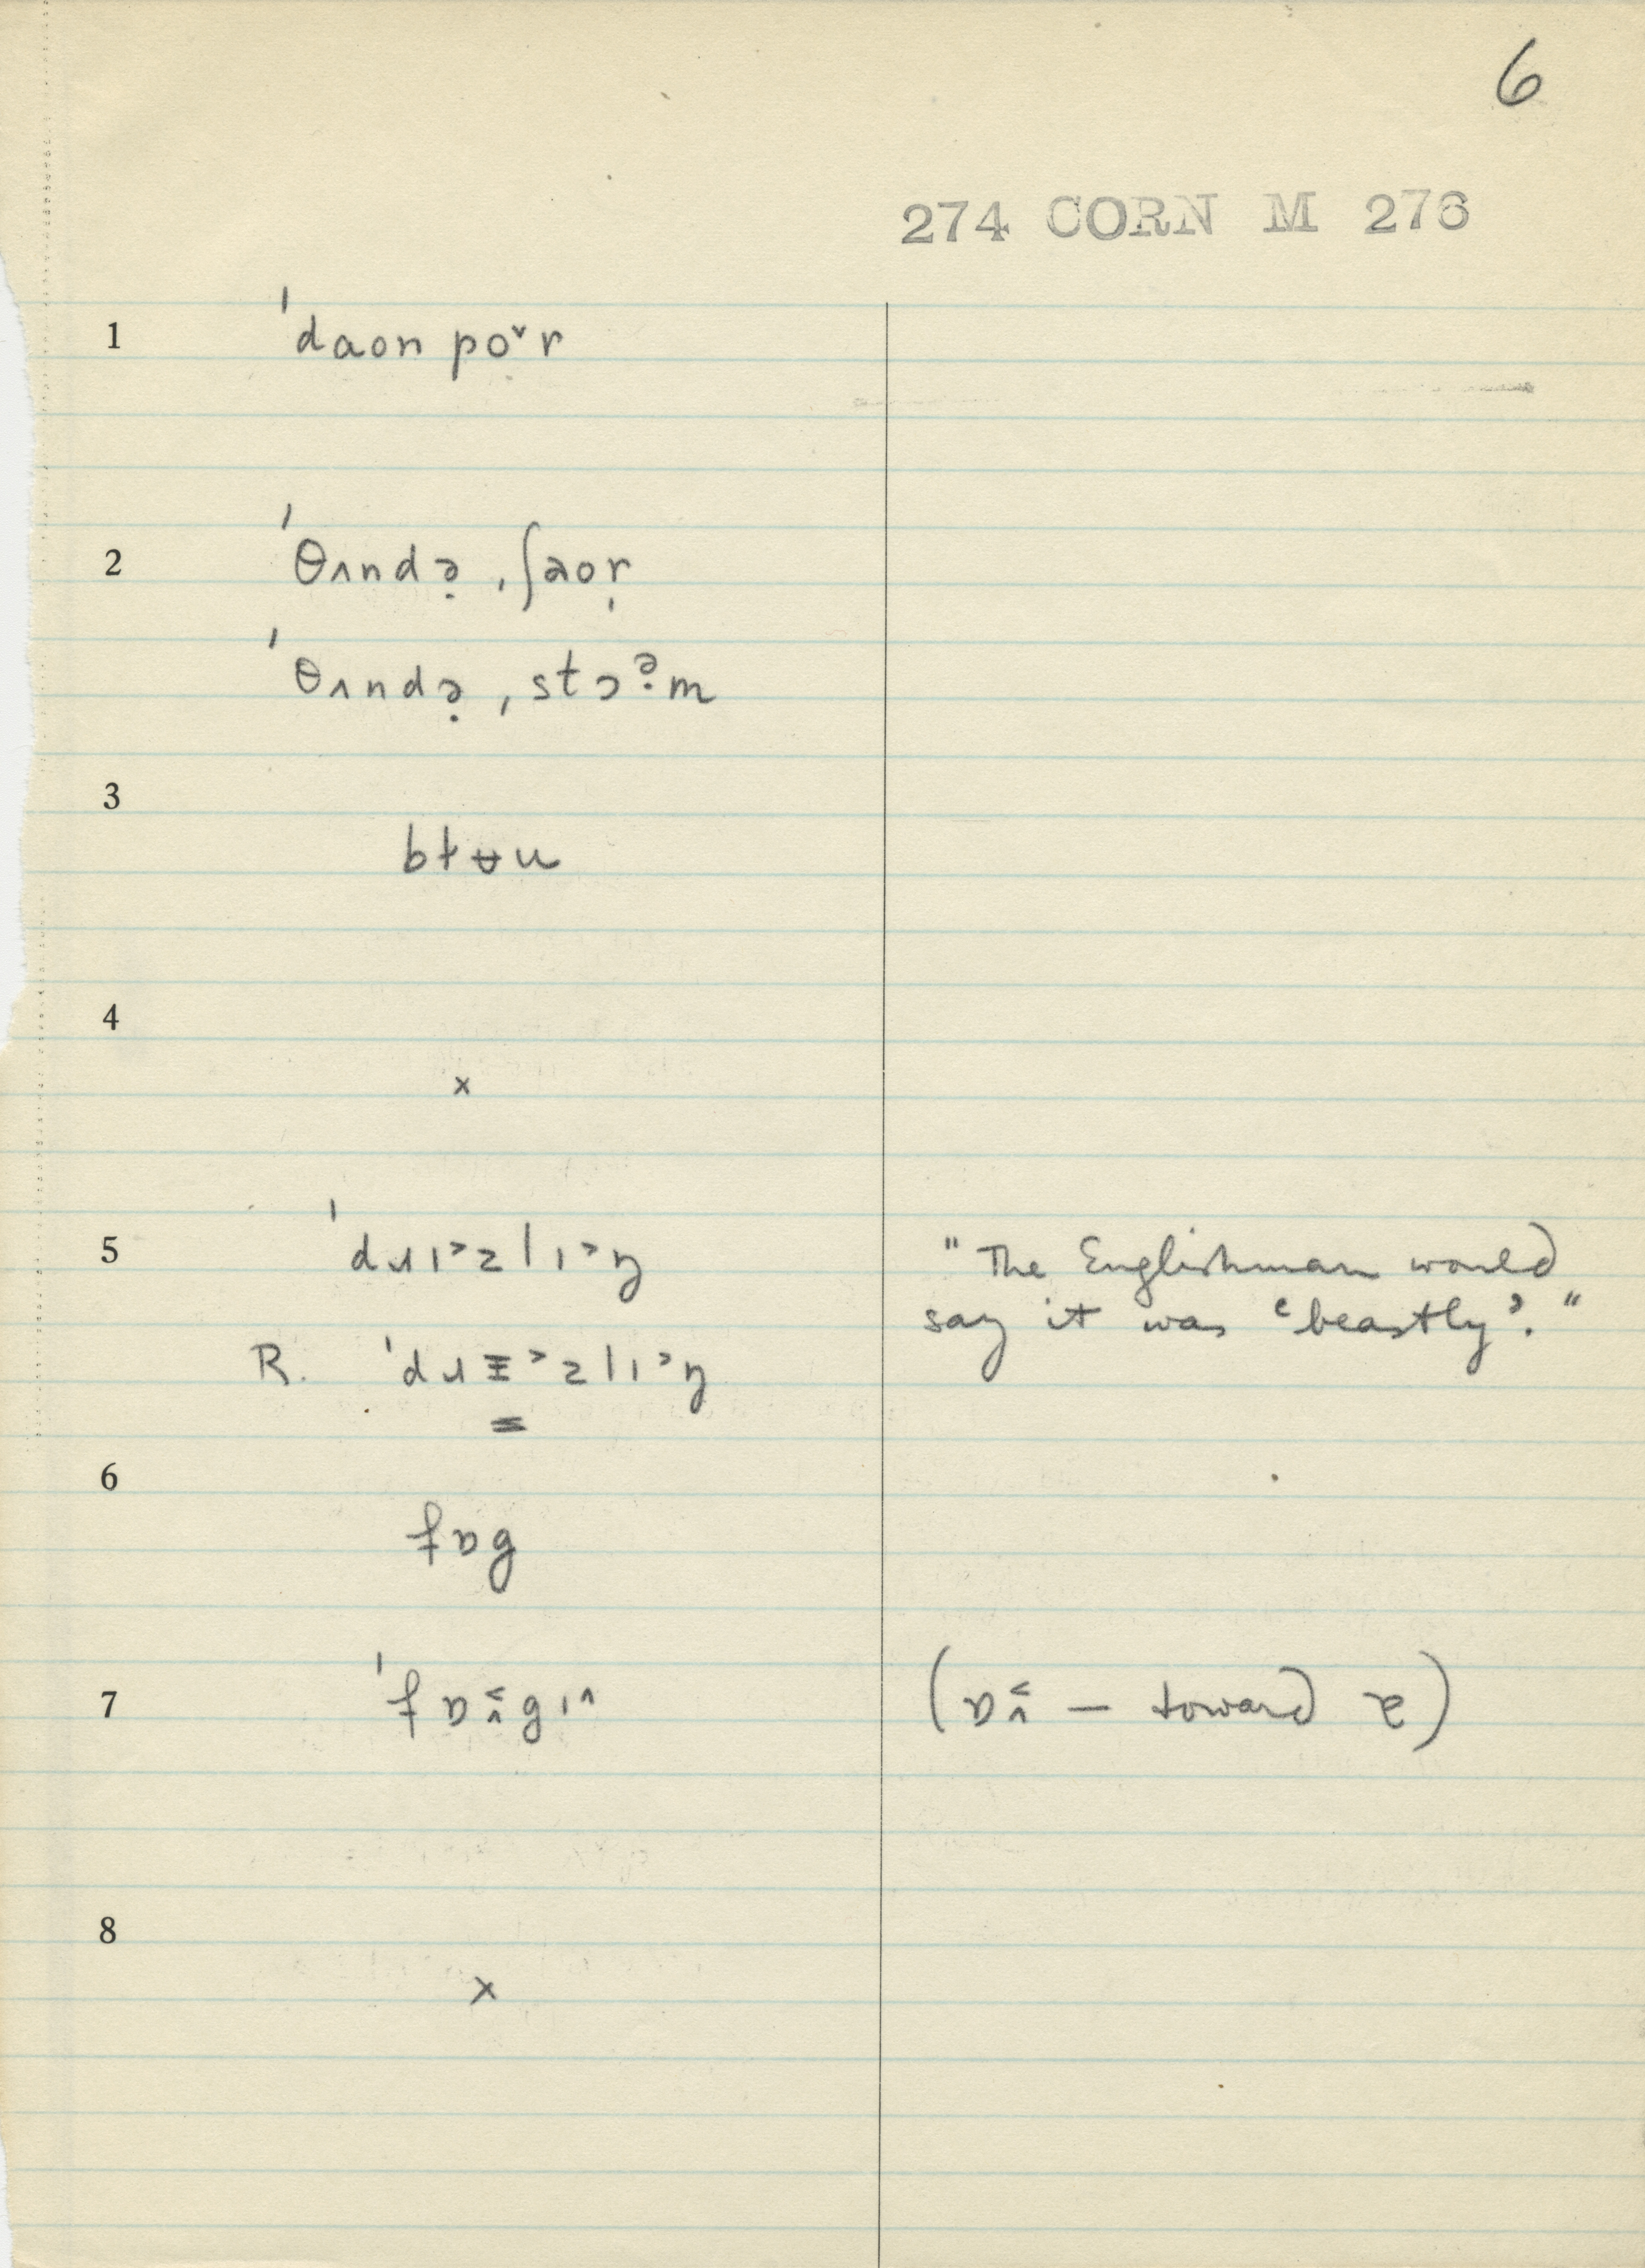 6
274 CORN M 276
1 ˈdaon poˇr
2 ˈθʌndə̣ ˌʃaor̩
ˈθʌndə̣ ˌstɔə̣m
3 bɫʉu
4 x
5 ˈdɹɪ˃zlɪ˃ŋ
"The Englishman would
say it was 'beastly'."
R. ˈdɹɪ˃zlɪ˃ŋ
6 fɒg
7 ˈfɒ˂˄gɪ˄
(ɒ˂˄ — toward ɐ)
8 x